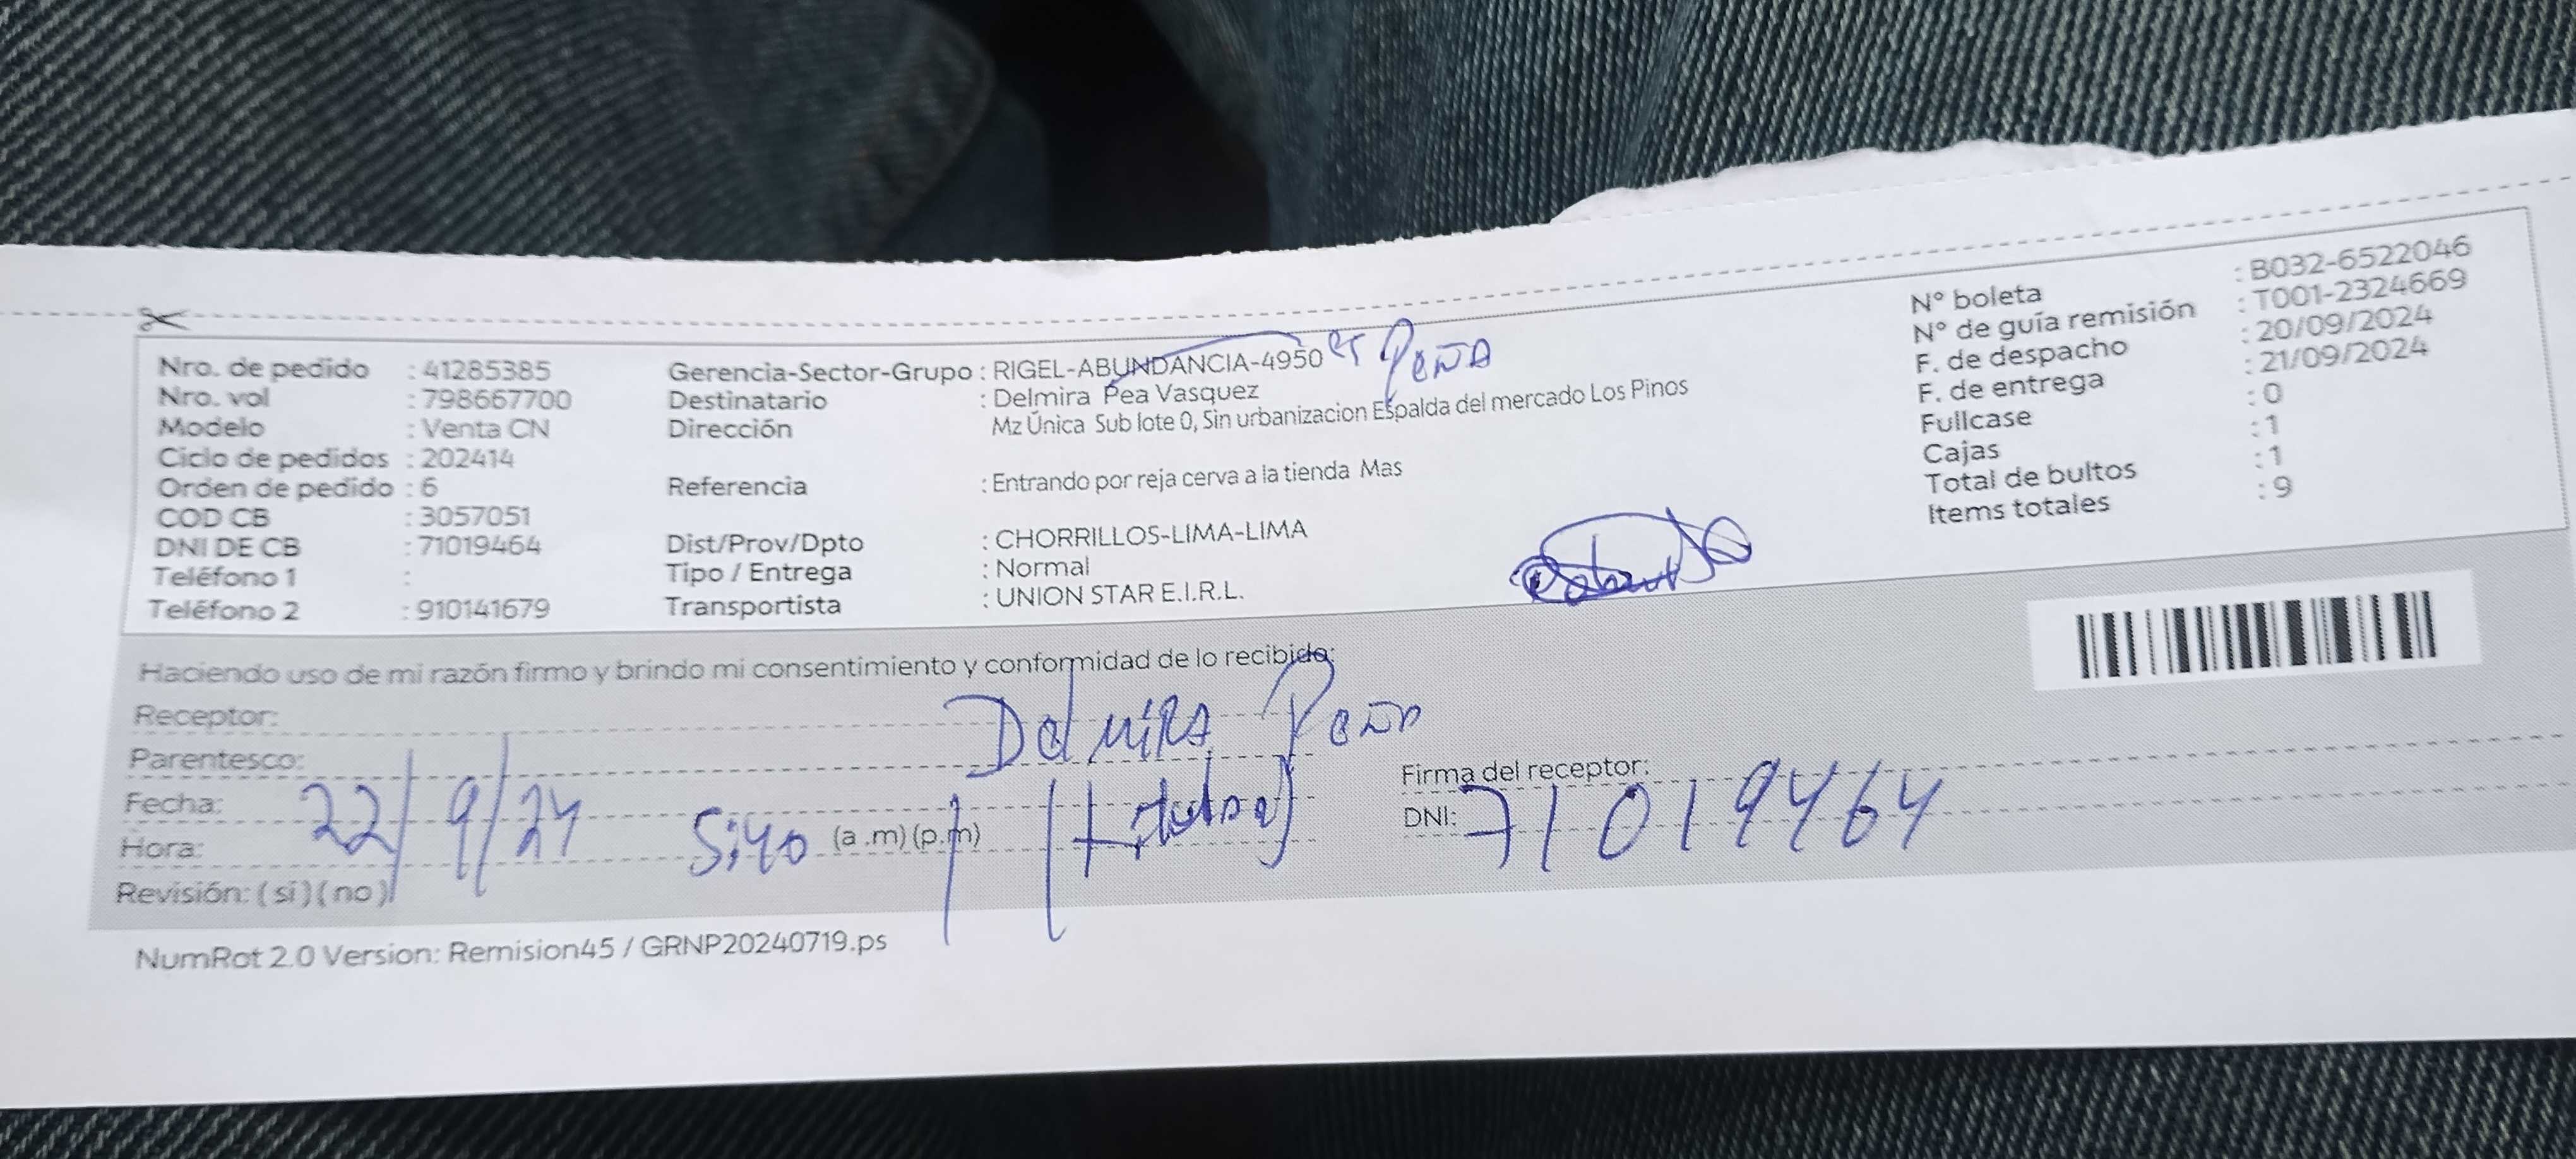 Nro. de pedido : 41285385
Nro. vol : 798667700
Modelo : Venta CN
Ciclo de pedidos : 202414
Orden de pedido : 6
COD CB : 3057051
DNI DE CB : 71019464
Teléfono 1 :
Teléfono 2 : 910141679
Gerencia-Sector-Grupo : RIGEL-ABUNDANCIA-4950
Peña
Destinatario : Delmira Pea Vasquez
Dirección Mz Única Sub lote 0, Sin urbanizacion Espalda del mercado Los Pinos
Referencia : Entrando por reja cerva a la tienda Mas
Dist/Prov/Dpto : CHORRILLOS-LIMA-LIMA
Tipo / Entrega : Normal
Transportista : UNION STAR E.I.R.L.
N° boleta : B032-6522046
N° de guía remisión : T001-2324669
F. de despacho : 20/09/2024
F. de entrega : 21/09/2024
Fullcase : 0
Cajas : 1
Total de bultos : 1
Items totales : 9
Haciendo uso de mi razón firmo y brindo mi consentimiento y conformidad de lo recibido:
Receptor: Delmira Peña
Parentesco:
Fecha: 22/9/24
Hora: 5:40 (a .m) (p.m)
Revisión: ( si ) ( no )
Firma del receptor:
DNI: 71019464
NumRot 2.0 Version: Remision45 / GRNP20240719.ps